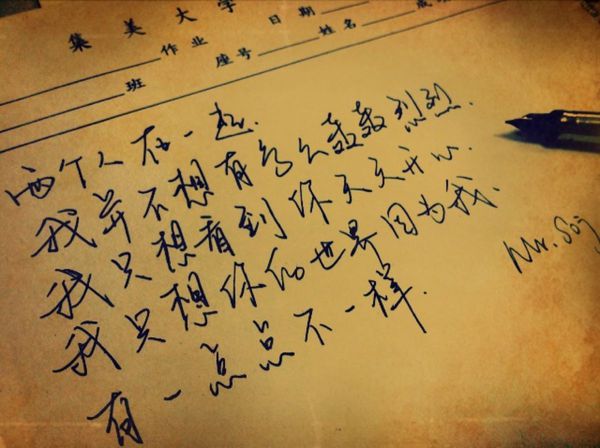 集美大学
作业 日期
班 座号 姓名 成
两个人在一起.
我并不想有多么轰轰烈烈.
我只想看到你天天开心.
我只想你的世界因为我.
有一点点不一样.
Mr. Song